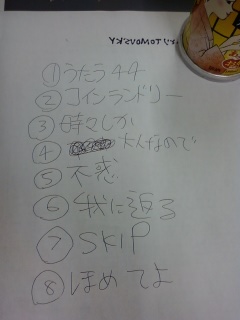 TOMOVSKY
① うたう44
② コインランドリー
③ 時々しか
④ 大人なので
⑤ 不惑
⑥ 我に返る
⑦ SKIP
⑧ ほめてよ